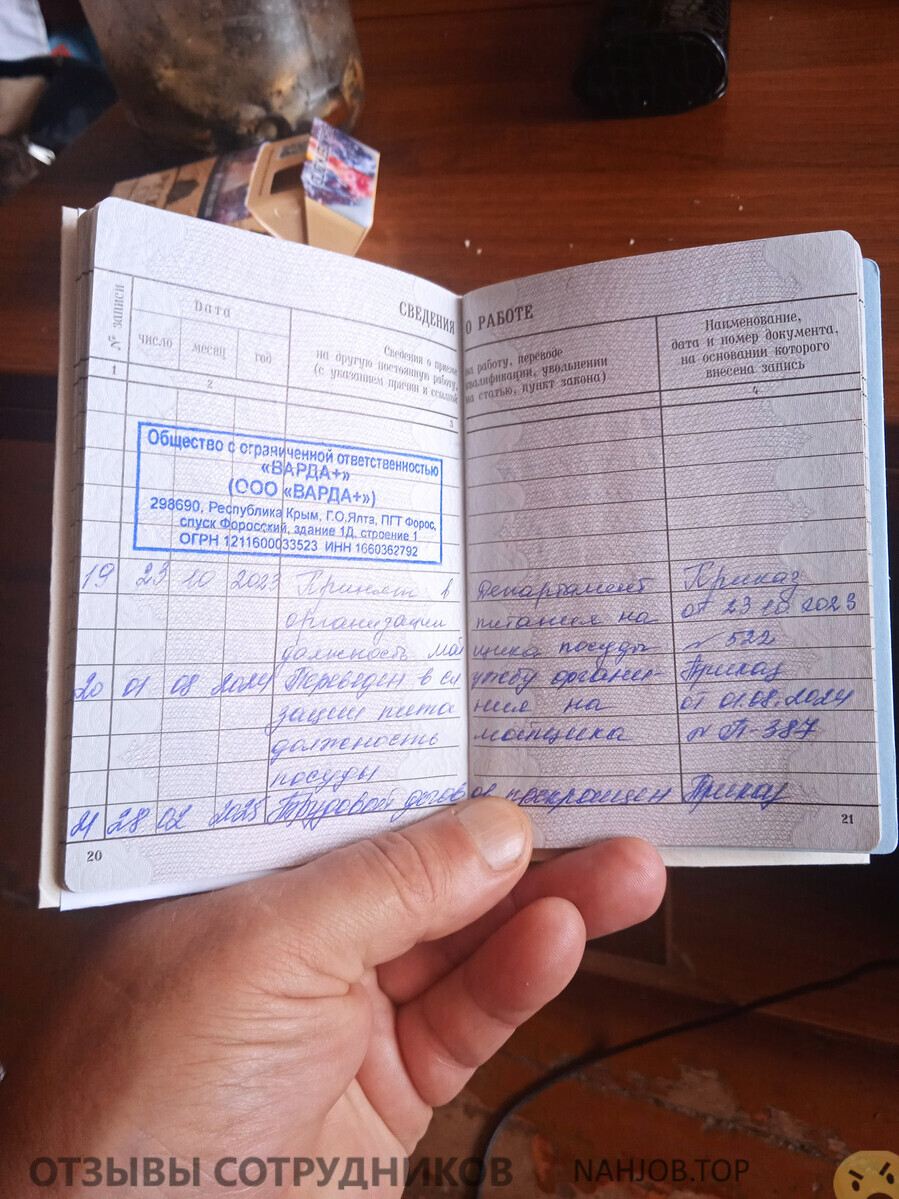 СВЕДЕНИЯ О РАБОТЕ
№ записи
Дата
число
месяц
год
Сведения о приеме на работу, переводе
на другую постоянную работу, квалификации, увольнении
(с указанием причин и ссылкой на статью, пункт закона)
Наименование,
дата и номер документа,
на основании которого
внесена запись
1
2
3
4
Общество с ограниченной ответственностью
«ВАРДА+»
(ООО «ВАРДА+»)
298690, Республика Крым, Г.О.Ялта, ПГТ Форос,
спуск Форосский, здание 1Д, строение 1
ОГРН 1211600033523 ИНН 1660362792
19 23 10 2023 Принят в Департамент Приказ
организации питания на от 23 10 2023
должность мойщика посуды № 522
20 01 08 2024 Переведен в службу органи- Приказ
зации питания на от 01.08.2024
должность мойщика № П-387
посуды
21 28 02 2025 Трудовой договор прекращен Приказ
20
21
ОТЗЫВЫ СОТРУДНИКОВ
NAHJOB.TOP